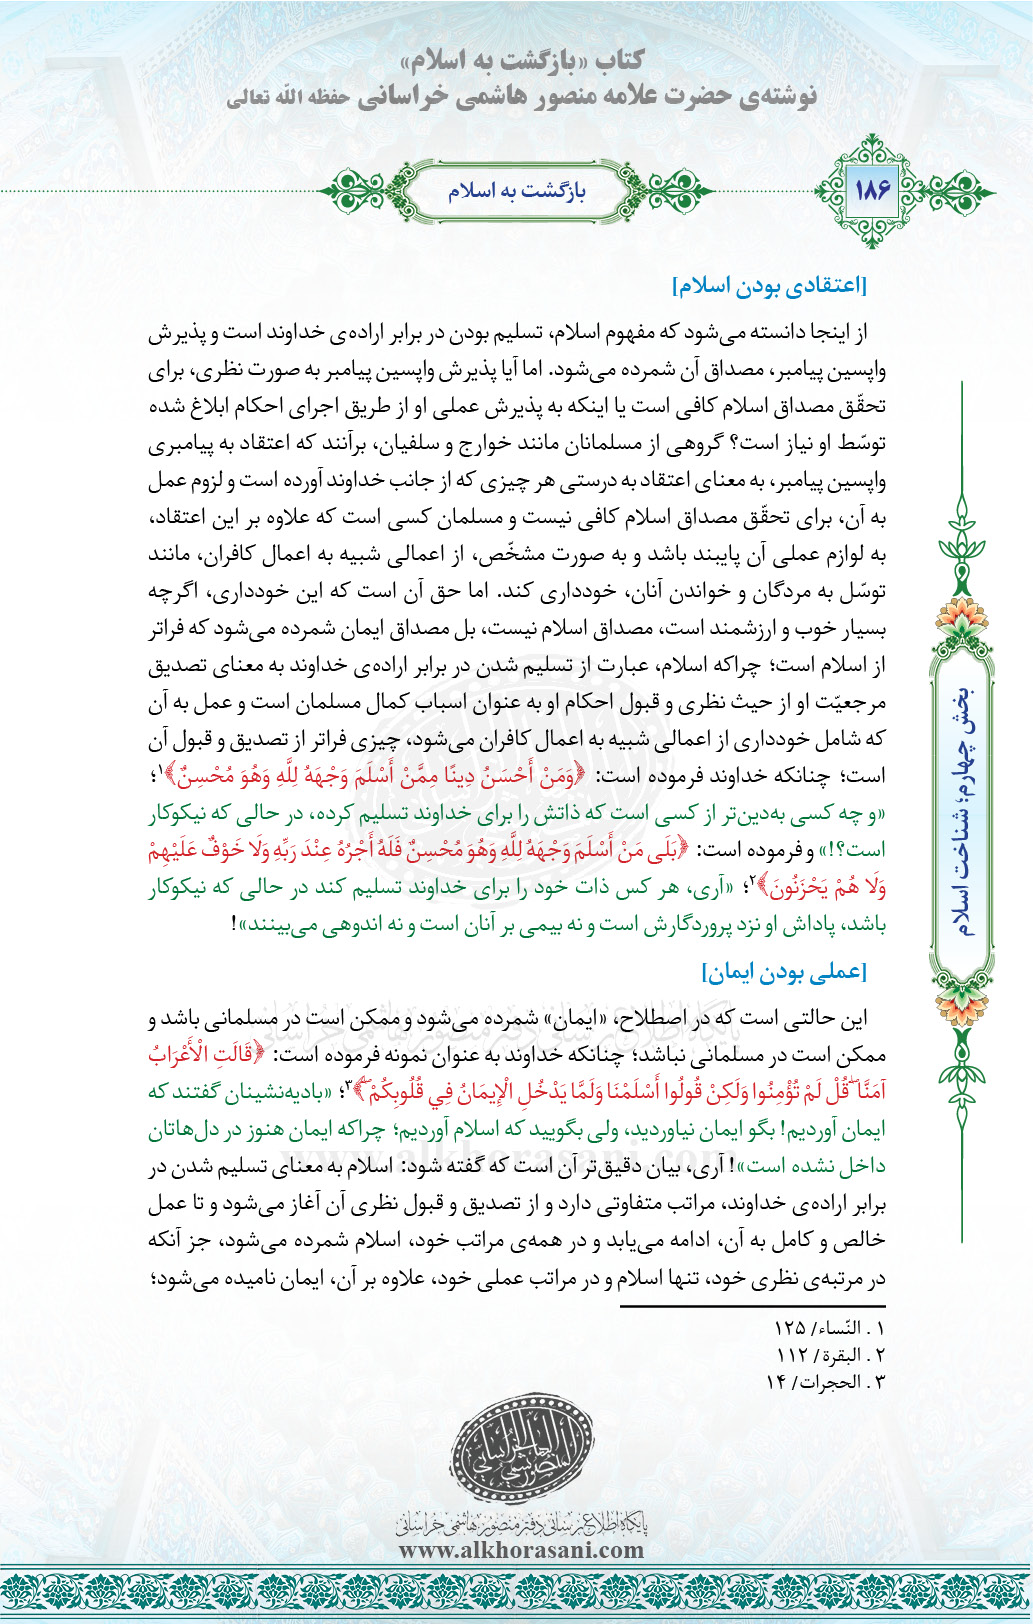 کتاب «بازگشت به اسلام»
نوشته‌ی حضرت علامه منصور هاشمی خراسانی حفظه الله تعالی
۱۸۶
بازگشت به اسلام
[اعتقادی بودن اسلام]
از اینجا دانسته می‌شود که مفهوم اسلام، تسلیم بودن در برابر اراده‌ی خداوند است و پذیرش
واپسین پیامبر، مصداق آن شمرده می‌شود. اما آیا پذیرش واپسین پیامبر به صورت نظری، برای
تحقّق مصداق اسلام کافی است یا اینکه به پذیرش عملی او از طریق اجرای احکام ابلاغ شده
توسّط او نیاز است؟ گروهی از مسلمانان مانند خوارج و سلفیان، برآنند که اعتقاد به پیامبری
واپسین پیامبر، به معنای اعتقاد به درستی هر چیزی که از جانب خداوند آورده است و لزوم عمل
به آن، برای تحقّق مصداق اسلام کافی نیست و مسلمان کسی است که علاوه بر این اعتقاد،
به لوازم عملی آن پایبند باشد و به صورت مشخّص، از اعمالی شبیه به اعمال کافران، مانند
توسّل به مردگان و خواندن آنان، خودداری کند. اما حق آن است که این خودداری، اگرچه
بسیار خوب و ارزشمند است، مصداق اسلام نیست، بل مصداق ایمان شمرده می‌شود که فراتر
از اسلام است؛ چراکه اسلام، عبارت از تسلیم شدن در برابر اراده‌ی خداوند به معنای تصدیق
مرجعیّت او از حیث نظری و قبول احکام او به عنوان اسباب کمال مسلمان است و عمل به آن
که شامل خودداری از اعمالی شبیه به اعمال کافران می‌شود، چیزی فراتر از تصدیق و قبول آن
است؛ چنانکه خداوند فرموده است: ﴿وَمَنْ أَحْسَنُ دِينًا مِمَّنْ أَسْلَمَ وَجْهَهُ لِلَّهِ وَهُوَ مُحْسِنٌ﴾۱؛
«و چه کسی به‌دین‌تر از کسی است که ذاتش را برای خداوند تسلیم کرده، در حالی که نیکوکار
است؟!» و فرموده است: ﴿بَلَى مَنْ أَسْلَمَ وَجْهَهُ لِلَّهِ وَهُوَ مُحْسِنٌ فَلَهُ أَجْرُهُ عِنْدَ رَبِّهِ وَلَا خَوْفٌ عَلَيْهِمْ
وَلَا هُمْ يَحْزَنُونَ﴾۲؛ «آری، هر کس ذات خود را برای خداوند تسلیم کند در حالی که نیکوکار
باشد، پاداش او نزد پروردگارش است و نه بیمی بر آنان است و نه اندوهی می‌بینند»!
[عملی بودن ایمان]
این حالتی است که در اصطلاح، «ایمان» شمرده می‌شود و ممکن است در مسلمانی باشد و
ممکن است در مسلمانی نباشد؛ چنانکه خداوند به عنوان نمونه فرموده است: ﴿قَالَتِ الْأَعْرَابُ
آمَنَّا ۖ قُلْ لَمْ تُؤْمِنُوا وَلَكِنْ قُولُوا أَسْلَمْنَا وَلَمَّا يَدْخُلِ الْإِيمَانُ فِي قُلُوبِكُمْ ۖ﴾۳؛ «بادیه‌نشینان گفتند که
ایمان آوردیم! بگو ایمان نیاوردید، ولی بگویید که اسلام آوردیم؛ چراکه ایمان هنوز در دل‌هاتان
داخل نشده است»! آری، بیان دقیق‌تر آن است که گفته شود: اسلام به معنای تسلیم شدن در
برابر اراده‌ی خداوند، مراتب متفاوتی دارد و از تصدیق و قبول نظری آن آغاز می‌شود و تا عمل
خالص و کامل به آن، ادامه می‌یابد و در همه‌ی مراتب خود، اسلام شمرده می‌شود، جز آنکه
در مرتبه‌ی نظری خود، تنها اسلام و در مراتب عملی خود، علاوه بر آن، ایمان نامیده می‌شود؛
۱ . النّساء/ ۱۲۵
۲ . البقرة/ ۱۱۲
۳ . الحجرات/ ۱۴
بخش چهارم؛ شناخت اسلام
پایگاه اطلاع‌رسانی دفتر منصور هاشمی خراسانی
www.alkhorasani.com
المنصور الهاشمی الخراسانی
پایگاه اطلاع‌رسانی دفتر منصور هاشمی خراسانی
www.alkhorasani.com